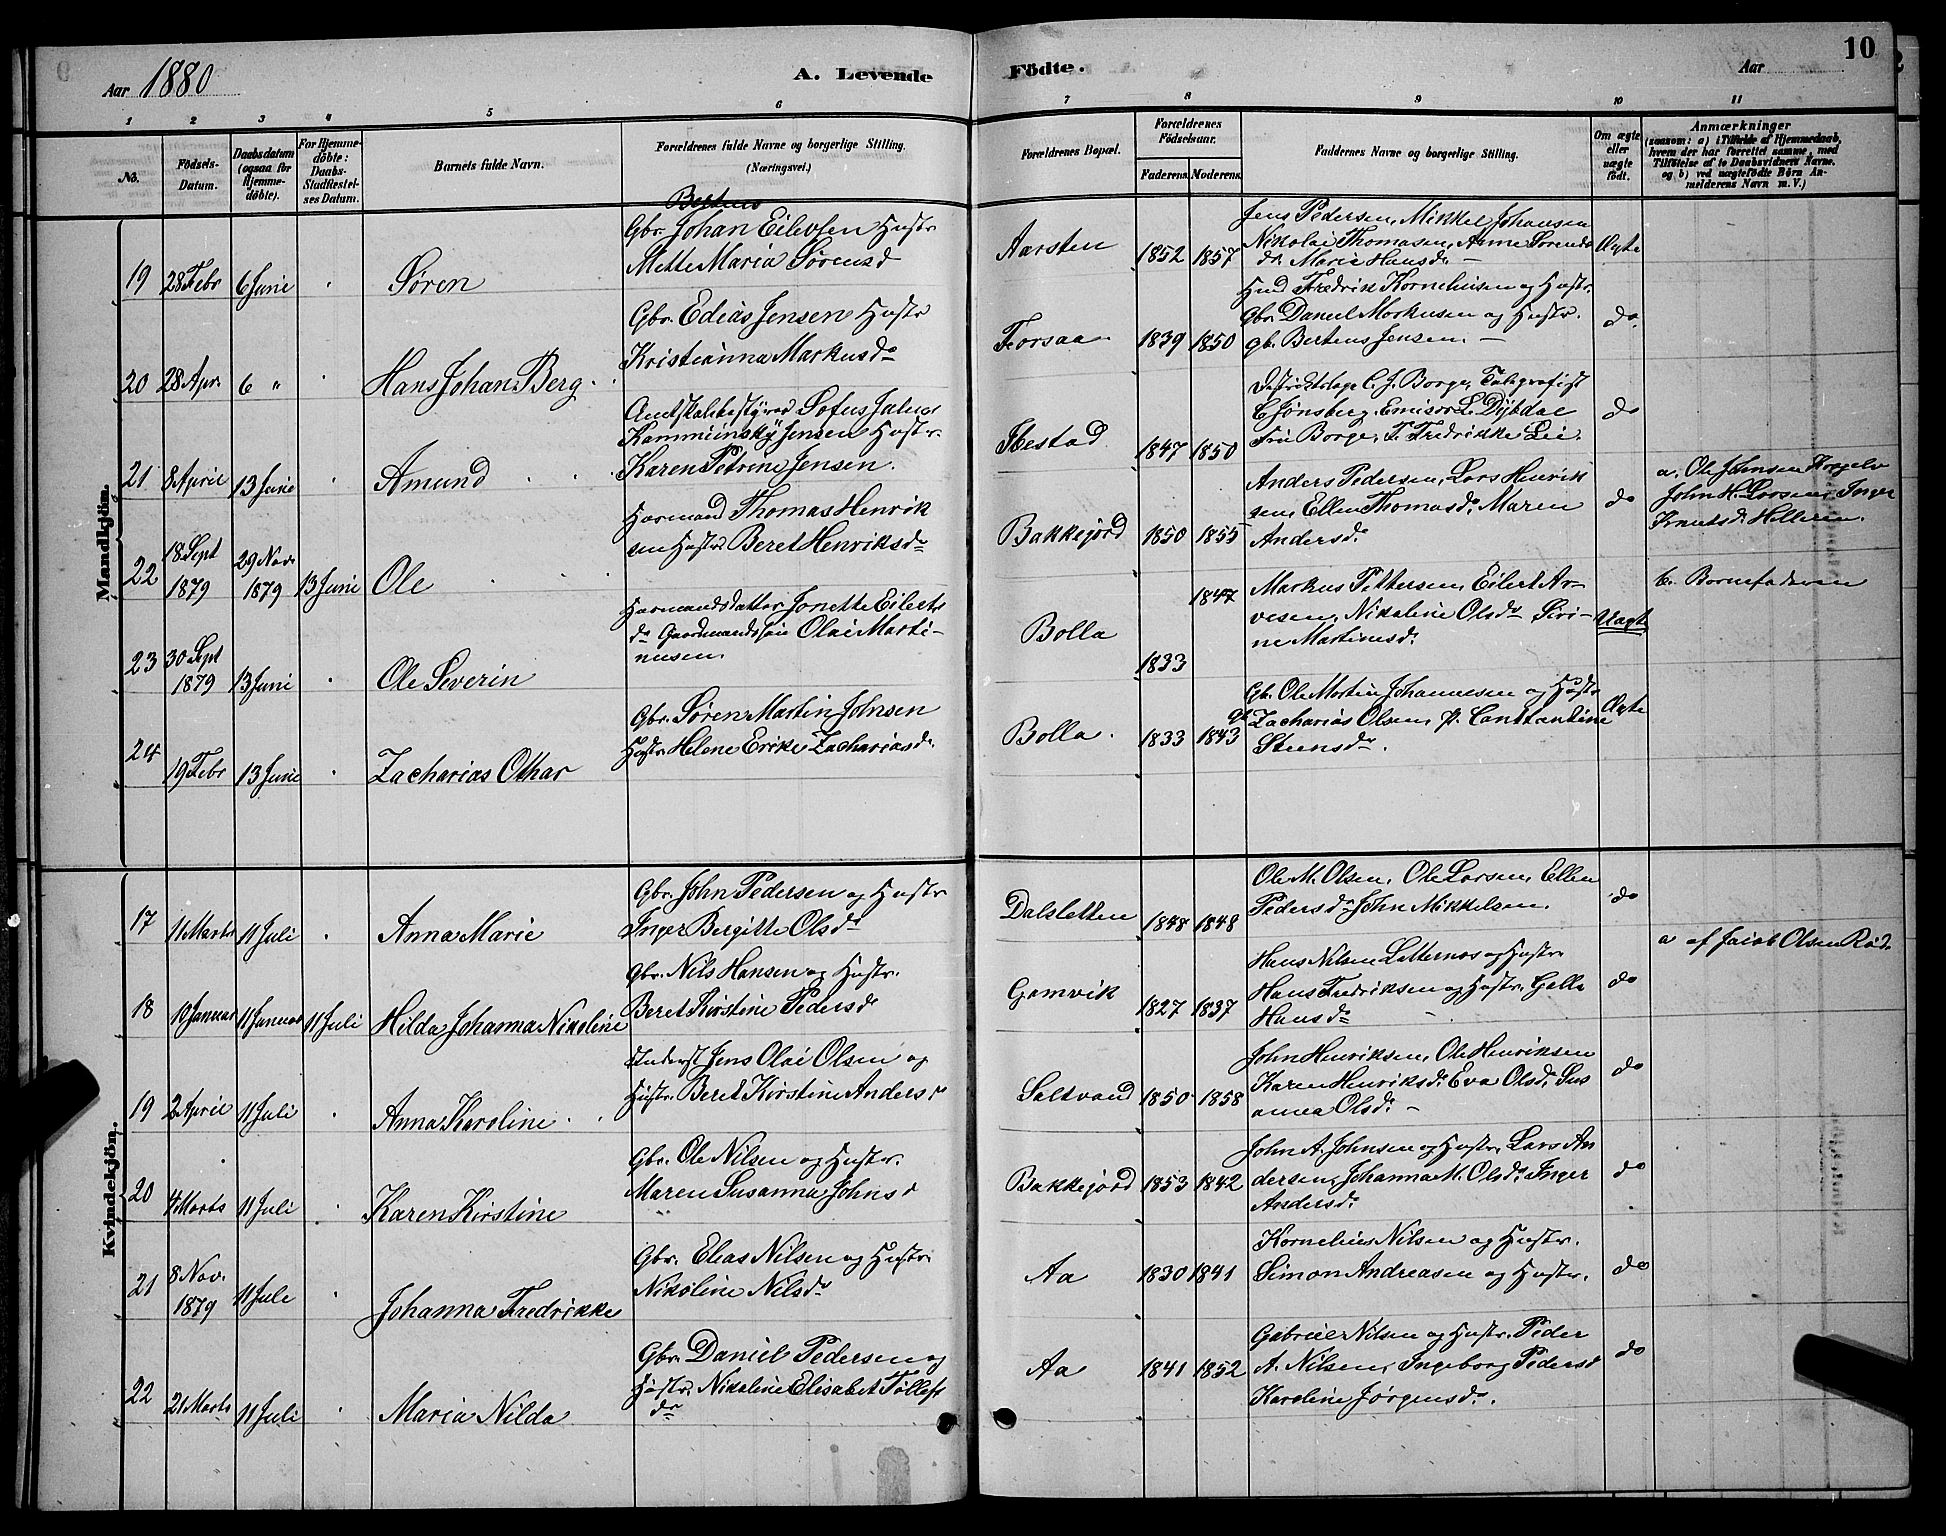 Aar 1880
A. Levende
Födte.
Aar
10
1 2 3 4 5 6 7 8 9 10 11
No.
Födsels-Datum.
Daabsdatum (ogsaa for Hjemme-döbte).
For Hjemme-döbte: Daabs-Stadfæstel-ses Datum.
Barnets fulde Navn.
Forældrenes fulde Navne og borgerlige Stilling. (Næringsvei.)
Forældrenes Bopæl.
Forældrenes Födselsaar.
Faderens. Moderens.
Faddernes Navne og borgerlige Stilling.
Om ægte eller uægte födt.
Anmærkninger
(saasom: a) i Tilfælde af Hjemmedaab, hvem der har forrettet samme, med Tilföielse af to Daabsvidners Navne. og b) ved uægtefödte Börn Anmelderens Navn m. V.)
Mandkjön.
19 28 Febr 6 Juni Søren
Bertens
Gbr. Johan Eilevsen Hustr
Mette Maria Sørensd
Aarsten 1852 1857
Jens Pedersen, Mikkel Johansen
Nikolai Thomasen, Anne Sørens
dr Marie Hansdr
Ægte
20 28 Apr. 6 " Hans Johan Berg
Gbr. Edias Jensen Hustr
Kristianna Markusdr
Forsaa 1839 1850
Fredrik Korneliusen og Hustr.
Gbr. Daniel Markusen og Hustr.
gb. Bertens Jensen.
do
21 8 April 13 Juni Amund
Amtskolebestyrer Sofus Julius
Kamminsky Jensen Hustr.
Karen Petrine Jensen.
Ibestad 1847 1850
Distriktslæge C. J. Borge, Telegrafist
C Jønsberg, Emisær L. Dybdal
Fru Borge, F. Fredrikke Lie.
do
22 18 Sept 1879 29 Nov. 1879 13 Juni Ole
Husmand Thomas Henrik
sen Hustr Beret Henriksdr
Bakkejord 1850 1855
Anders Pedersen, Lars Henrik
sen, Ellen Thomasdr Maren
Andersdr
do
a. Ole Johnsen
John H. Larsen, Inger
Knutsdr Helleren.
23 30 Sept 1879 13 Juni Ole Severin
Husmandsdatter Jonette Eilerts
dr Gaardmandssøn Olai Marti-
nusen.
Bolla 1833 1847
Markus Pettersen, Eilert Ar-
vesen, Nikoline Olsdr Siri-
ne Martinusdr
Uægt
b. Barnefaderen
24 19 Febr 13 Juni Zacharias Othar
Gbr. Søren Martin Johnsen
Hustr. Helene Erike Zachariasdr.
Bolla. 1833 1843
Gb. Ole Martin Johannesen og Hustr
gb Zacharias Olsen, p. Constantine
Steensdr.
Ægte
Kvindekjön.
17 11 Marts 11 Juli Anna Marie
Gbr. John Pedersen og Hustr
Inger Bergitte Olsdr
Dalsletten 1848 1848
Ole M. Olsen, Ole Larsen, Ellen
Pedersdr John Mikkelsen.
do
18 10 Januar 11 Januar 11 Juli Hilda Johanna Nikoline
Gbr. Nils Hansen og Hustr.
Beret Kirstine Pedersdr
Gamvik 1827 1837
Hans Nilsen Letternes og Hustr.
Hans Fredriksen og Hustr.
Hansdr
do
a af Jacob Olsen Rød.
19 2 April 11 Juli Anna Karoline
Inderst Jens Olai Olsen og
Hustr. Beret Kirstine Andersdr
Saltvand 1850 1858
John Henriksen, Ole Henriksen
Karen Henriksdr. Eva Olsdr. Sus
anna Olsdr.
do
20 4 Marts 11 Juli Karen Kirstine
Gbr. Ole Nilsen og Hustr.
Maren Susanna Johnsd
Bakkejord 1853 1842
John A. Johnsen og Hustr. Lars An
dersen, Johanna M. Olsdr. Inger
Andersdr.
do
21 8 Nov. 1879 11 Juli Johanna Fredrikke
Gbr. Elias Nilsen og Hustr.
Nikoline Nilsdr
Aa 1830 1841
Kornelius Nilsen og Hustr.
Simon Andreasen og Hustr.
do
22 21 Marts 11 Juli Maria Nilda
Gbr. Daniel Pedersen og
Hustr. Nikoline Elisabet Tollefs
dr
Aa 1841 1852
Gabriel Nilsen og Hustr. Peder
A. Nilsen, Ingeborg Pedersd
Karoline Jørgensdr.
do